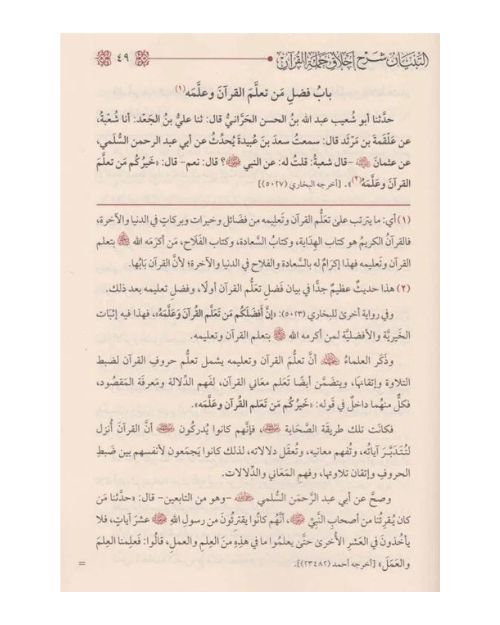 التبيان شرح أخلاق حملة القرآن ٤٩
بابُ فضلِ مَن تعلَّمَ القرآنَ وعلَّمَه(١)
حدَّثنا أبو شُعيب عبد الله بنُ الحسن الحَرَّانيُّ قال: ثنا عليُّ بنُ الجَعْد: أنا شُعْبةُ،
عن عَلْقَمةَ بن مَرْثَد قال: سمعتُ سعدَ بنَ عُبيدةَ يُحدِّثُ عن أبي عبد الرحمن السُّلَمي،
عن عثمانَ ﵁ –قال شعبةُ: قلتُ له: عن النبي ﷺ؟ قال: نعم– قال: «خَيرُكُم مَن تعلَّمَ
القرآنَ وعَلَّمَهُ(٢)». [أخرجه البخاري (٥٠٢٧)]
(١) أي: ما يترتب على تعَلُّم القرآن وتَعليمِه من فضَائل وخيرات وبركاتٍ في الدنيا والآخرة،
فالقرآنُ الكريمُ هو كتاب الهِدَاية، وكتابُ السعادة، وكتاب الفَلَاح، مَن أكرمَه الله ﷻ بتعلم
القرآن وتَعليمِه فهذا إكرامٌ له بالسعادة والفلاح في الدنيا والآخرة؛ لأنَّ القرآن بَابُها.
(٢) هذا حديثٌ عظيمٌ جدًّا في بيان فَضلِ تعَلُّم القرآن أولًا، وفضلِ تعليمِه بعد ذلك.
وفي رواية أخرى للبخاري (٥٠٢٣): «إنَّ أفضَلَكُم مَن تَعلَّم القُرآنَ وعَلَّمَهُ»، فهذا فيه إثبَات
الخَيريَّة والأفضليَّة لمن أكرمه الله ﷻ بتعلم القرآن وتعليمه.
وذَكَر العلماءُ أنَّ تعلُّمَ القرآن وتعليمَه يشمل تعلُّم حروفِ القرآن لضبط
التلاوة وإتقانهَا، ويتضمَّن أيضًا تَعلم معَاني القرآن، لفَهم الدِّلالة ومَعرفَة المقصُود،
فكلٌّ منهُما داخلٌ في قَوله: «خَيرُكُم مَن تَعلم القُرآن وعلَّمه».
فكانَت تلك طريقَة الصَّحَابة ﵃، فإنَّهم كانوا يُدركُون أنَّ القرآنَ أُنزل
لتُتَدبَّرَ آيَاتُه، وتُفهَم معانيه، وتُعقَل دلالاته، لذلك كانوا يَجمَعون لأنفسهم بين ضَبط
الحروفِ وإتقان تلاوتِها، وفهم المَعَاني والدِّلالات.
وصحَّ عن أبي عبد الرَّحمَن السُّلمي –وهو من التابعين– قال: «حدَّثنا مَن
كان يُقرِئُنا من أصحابِ النَّبيِّ ﷺ، أنَّهُم كانُوا يقترِئُونَ من رسولِ اللهِ ﷺ عشرَ آياتٍ، فلا
يأخذونَ في العَشرِ الأُخرَى حتَّى يعلَموا ما في هذِهِ منَ العِلمِ والعملِ، قالُوا: فَعلِمنا العِلمَ
والعَمَلَ» [أخرجه أحمد (٢٣٤٨٢)]. =